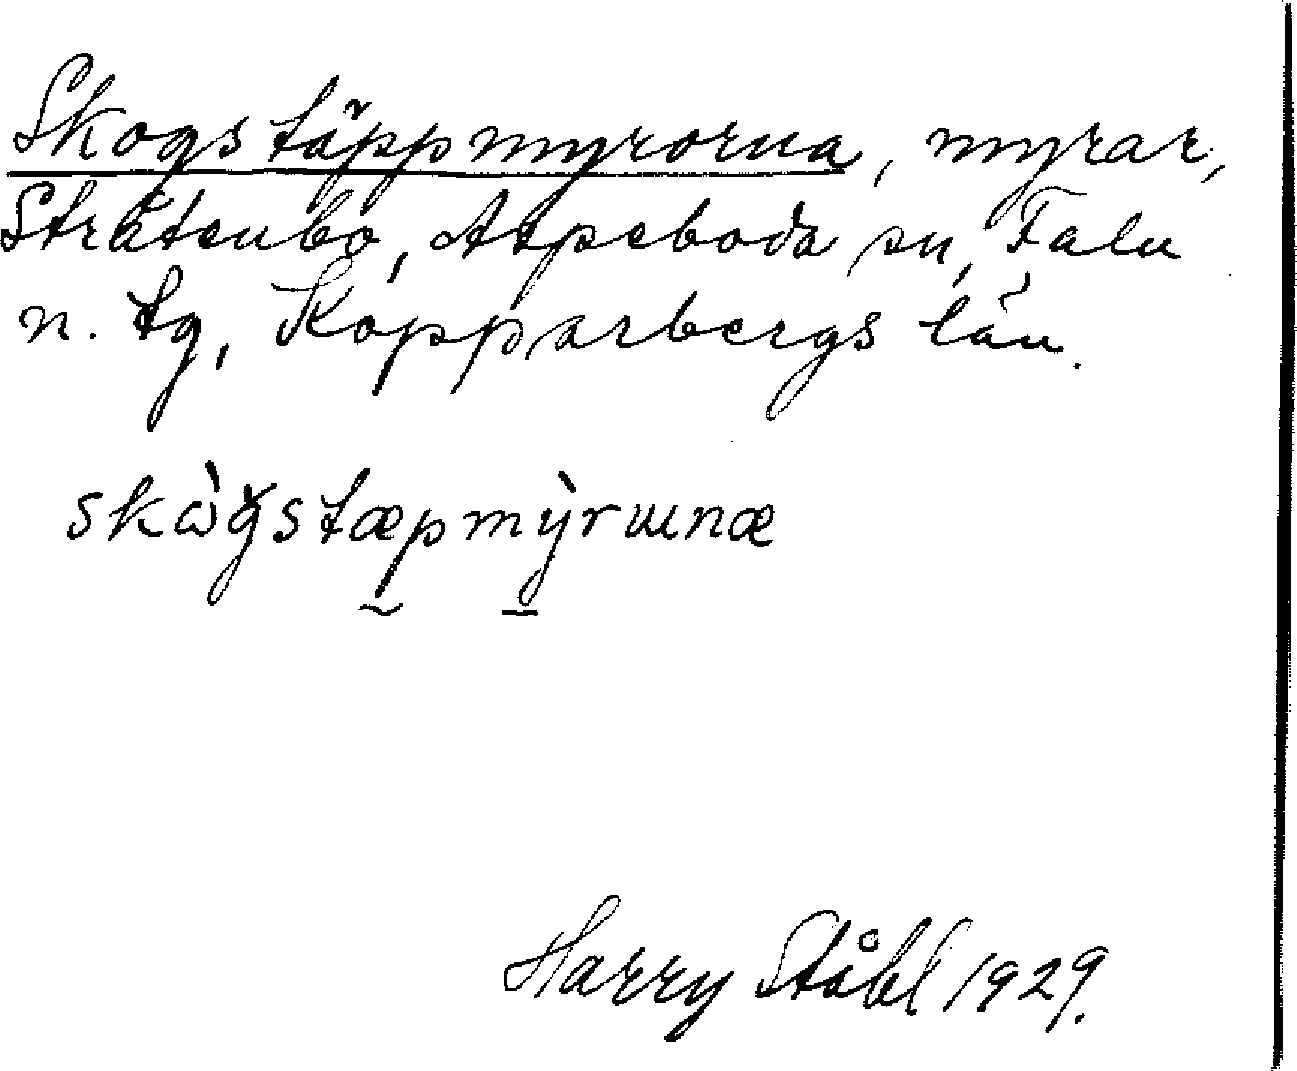 Skogstäppmyrorna, myrar,
Stråtenbo, Aspeboda sn, Falu
n. tg, Kopparbergs län.
skὼɣstæpmỳrɯnæ
Harry Ståhl 1929.